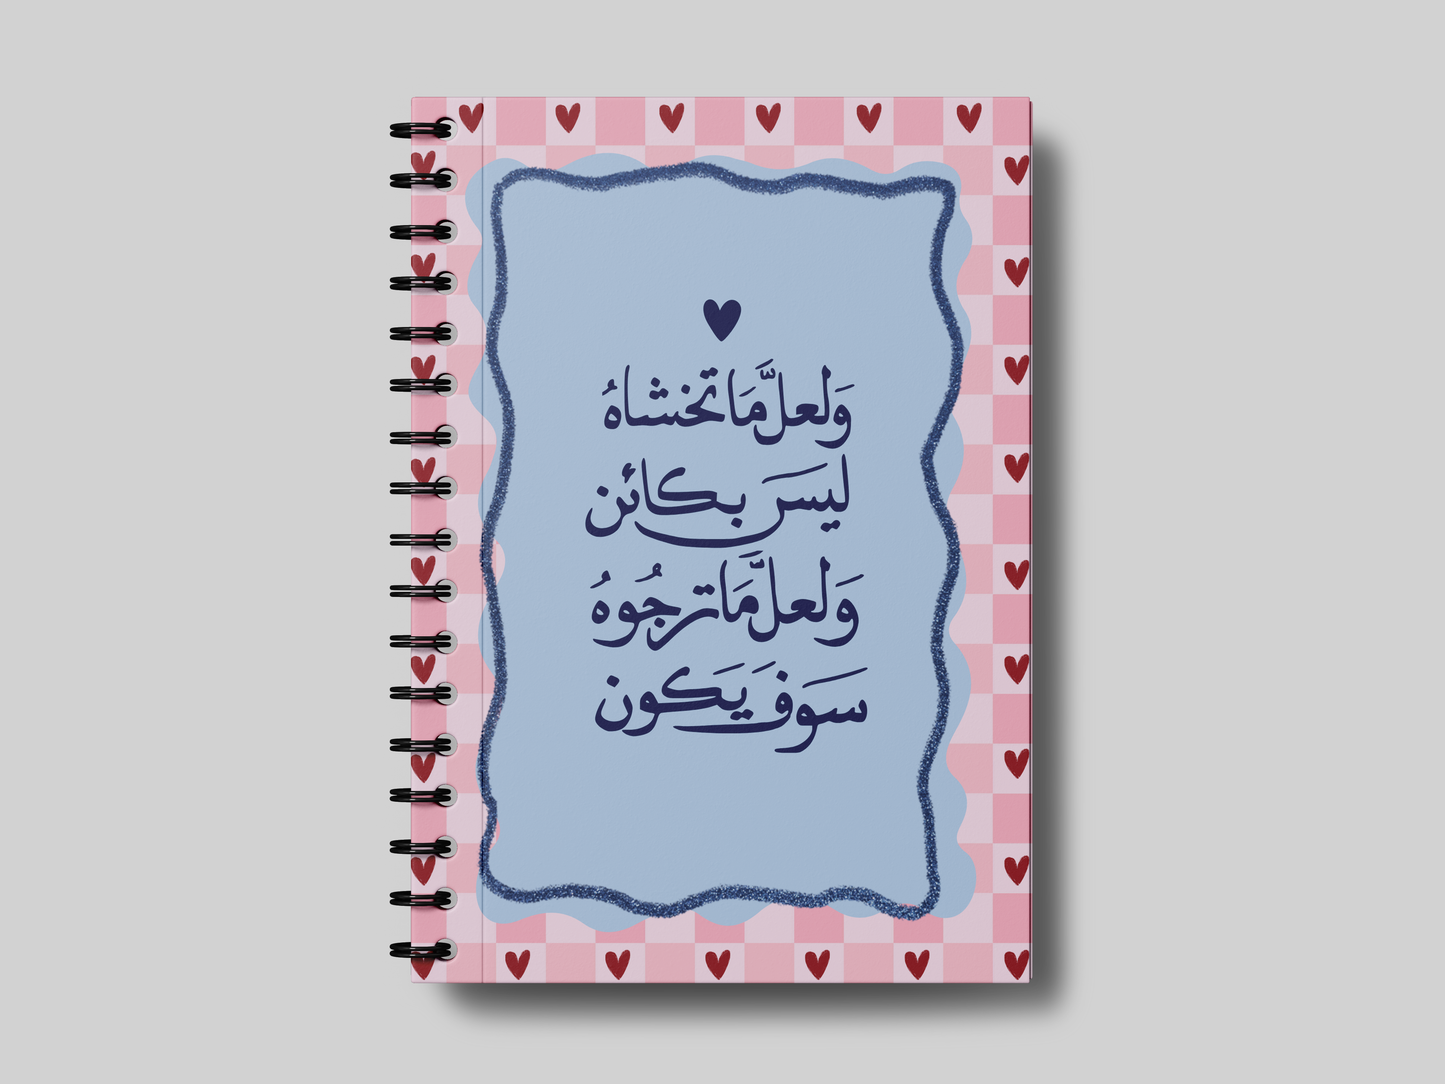 وَلعلَّ مَا تخشاهُ
ليسَ بكائن
وَلعلَّ مَا ترجُوهُ
سَوفَ يَكون